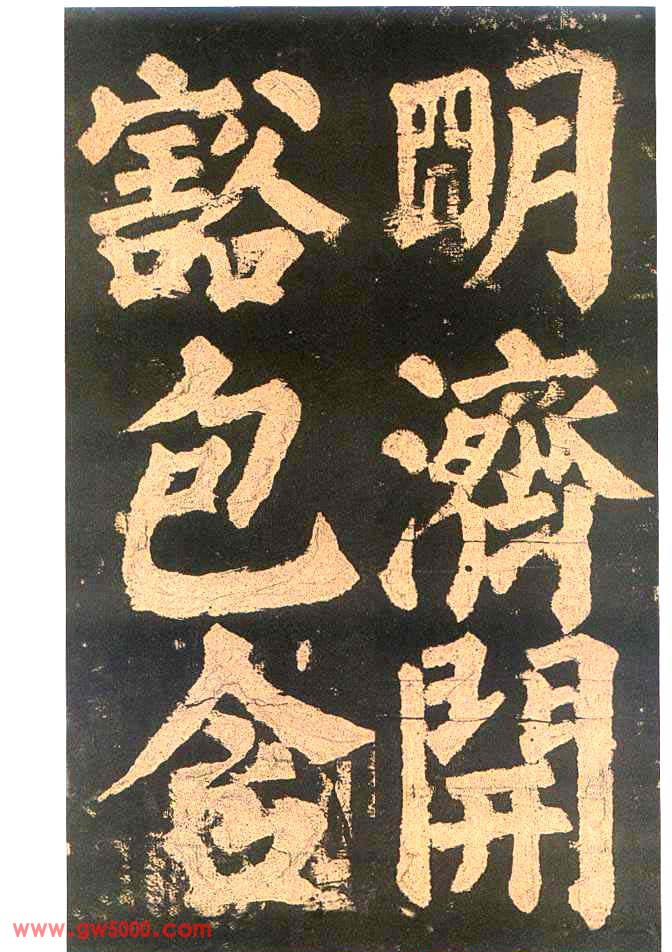 明濟開
豁包含
www.gw5000.com